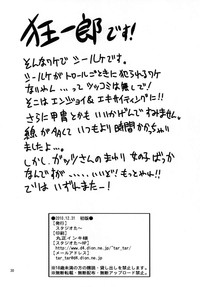 狂一郎です!
そんなワケでシールケです。
シールケがトロールごときに犯されるワケ
ないじゃん…ってツッコミは無しで!
そこはエンジョイ&エキサイティングに!!
さらに甲冑とかもいかげんですみません。
線が多くていつもより時間かかっちゃい
ましたよ…。
しかし、ガッツさんのまわり女子ばっか
になっているけど…もっとみれ!!
でわまた~!
●2010.12.31 初版●
【発行】
スタジオたー
【印刷】
丸正インキ様
【スタジオたーHP】
http://www.d4.dion.ne.jp/~tar_tar/
【メールアドレス】
tar_tar@d4.dion.ne.jp
※18歳未満の方の購読・貸し出しを禁止
※無断転載・無断複写・無断アップロード禁止